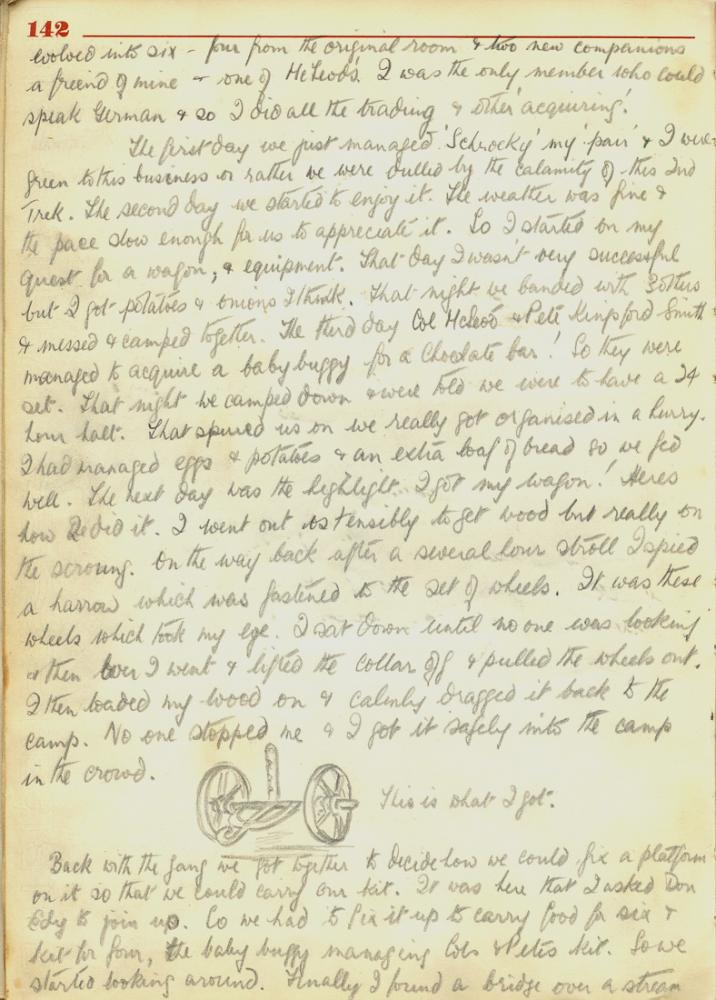 142
evolved into six - four from the original room & two new companions
a friend of mine & one of McLeod's. I was the only member who could
speak German & so I did all the trading & other 'acquiring'.
The first day we just managed. 'Schrocky' my 'pair' & I were
green to this business or rather we were dulled by the calamity of this 2nd
Trek. The second day we started to enjoy it. The weather was fine &
the pace slow enough for us to appreciate it. So I started on my
quest for a wagon, & equipment. That day I wasn't very successful
but I got potatoes & onions I think. That night we banded with 3 others
& messed & camped together. The third day Col McLeod & Pete Kingsford Smith
managed to acquire a baby buggy for a Chocolate bar! So they were
set. That night we camped down & were told we were to have a 24
hour halt. That spurred us on we really got organised in a hurry.
I had managed eggs & potatoes & an extra loaf of bread so we fed
well. The next day was the highlight. I got my wagon! Heres
how I did it. I went out ostensibly to get wood but really on
the scroung. On the way back after a several hour stroll I spied
a harrow which was fastened to the set of wheels. It was these
wheels which took my eye. I sat down until no one was looking
& then over I went & lifted the collar off & pulled the wheels out.
I then loaded my wood on & calmly dragged it back to the
camp. No one stopped me & I got it safely into the camp
in the crowd.
This is what I got.
Back with the gang we got together to decide how we could fix a platform
on it so that we could carry our kit. It was here that I asked Don
Edy to join up. So we had to fix it up to carry food for six &
kit for four, the baby buggy managing Cols & Petes kit. So we
started looking around. Finally I found a bridge over a stream